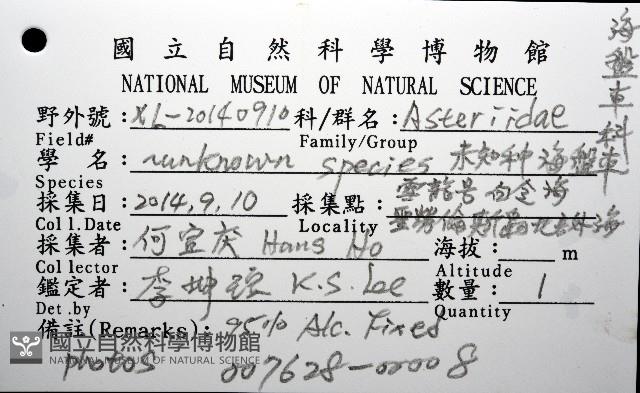 國立自然科學博物館
NATIONAL MUSEUM OF NATURAL SCIENCE
海盤車科
野外號:XL-20140910 科/群名:Asteriidae
Field# Family/Group
學 名:unknown species 未知种海盤車
Species
採集日:2014,9,10 採集點:
Coll.Date Locality
採集者:何宣庆 Hans Ho 海拔: m
Collector Altitude
鑑定者:李坤瑄 K.S. Lee 數量:1
Det.by Quantity
備註(Remarks): 95% Alc. Fixed
photos 007628-00008
國立自然科學博物館
NATIONAL MUSEUM OF NATURAL SCIENCE